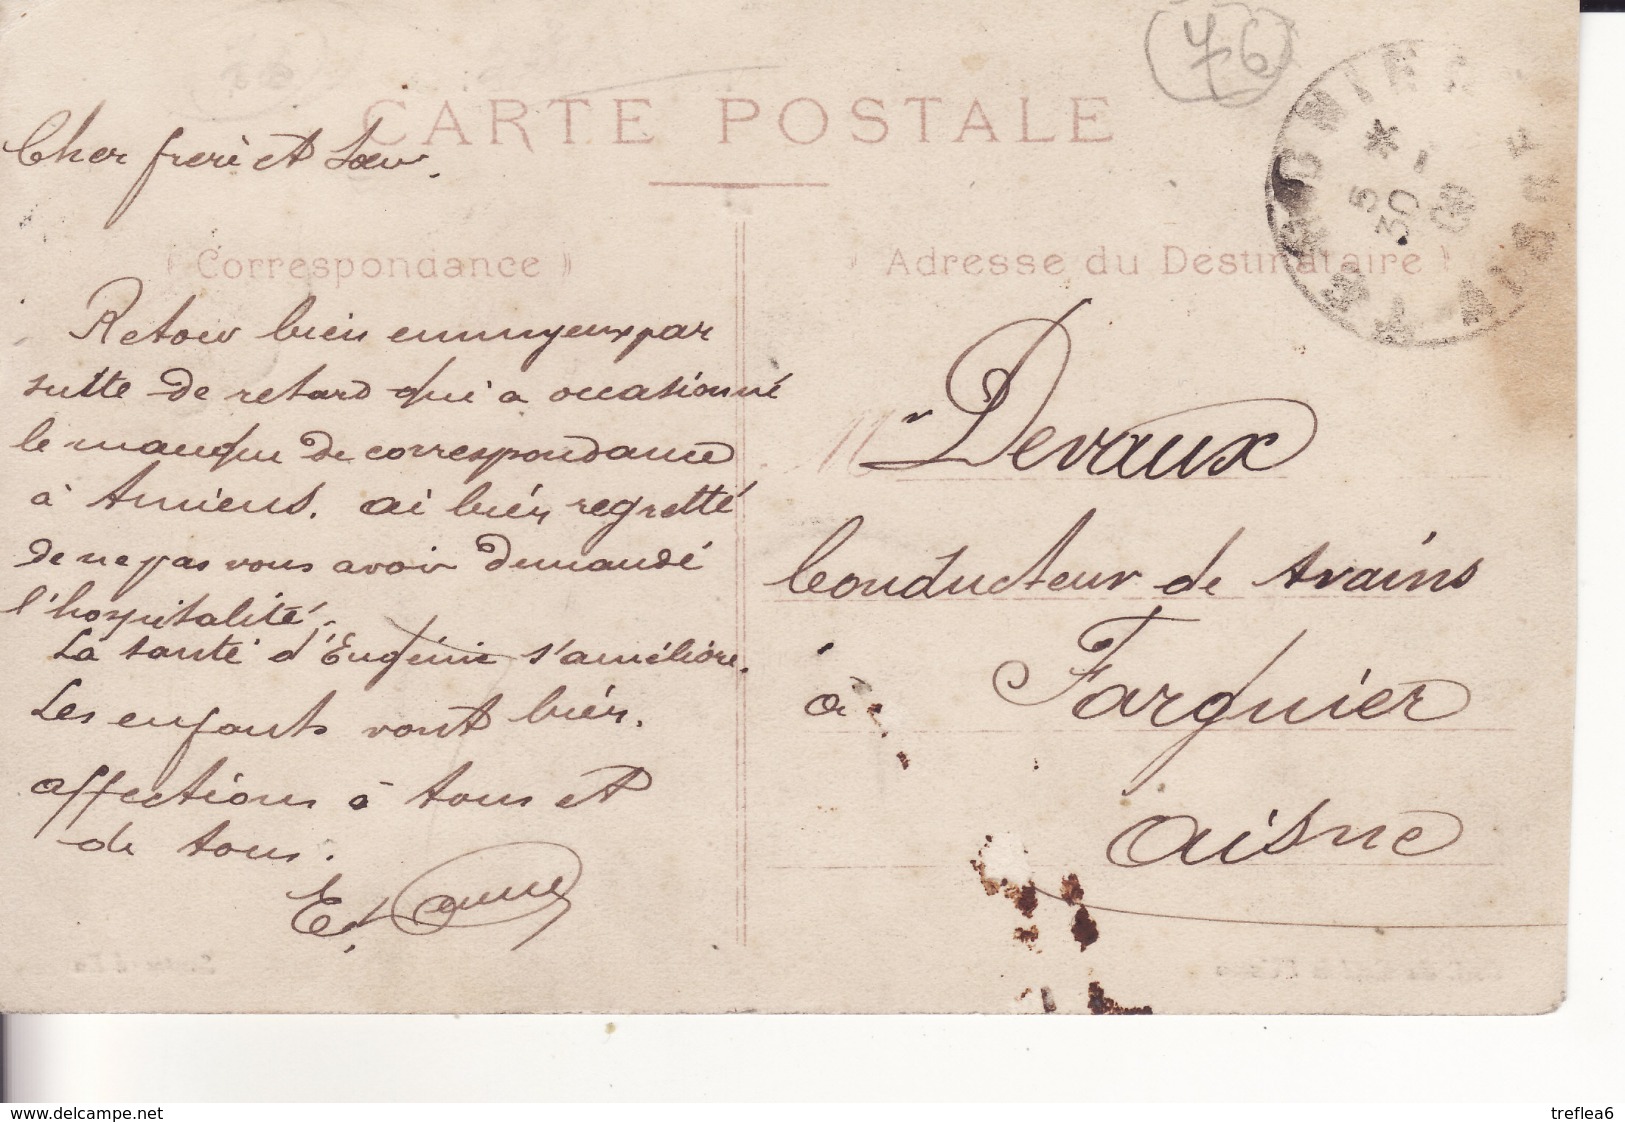 76
CARTE POSTALE
Cher frere et Sœur.
Correspondance
Adresse du Destinataire
Retour bien ennuyeux par
suite de retard qui a occasionné
le manque de correspondance
à Amiens. ai bien regretté
de ne pas vous avoir demandé
l'hospitalité.
La santé d'Eugénie s'améliore.
Les enfants vont bien.
affections à tous et
de tous.
Mr Devaux
Conducteur de trains
à Farguier
aisne
delcampe.net
treflea6